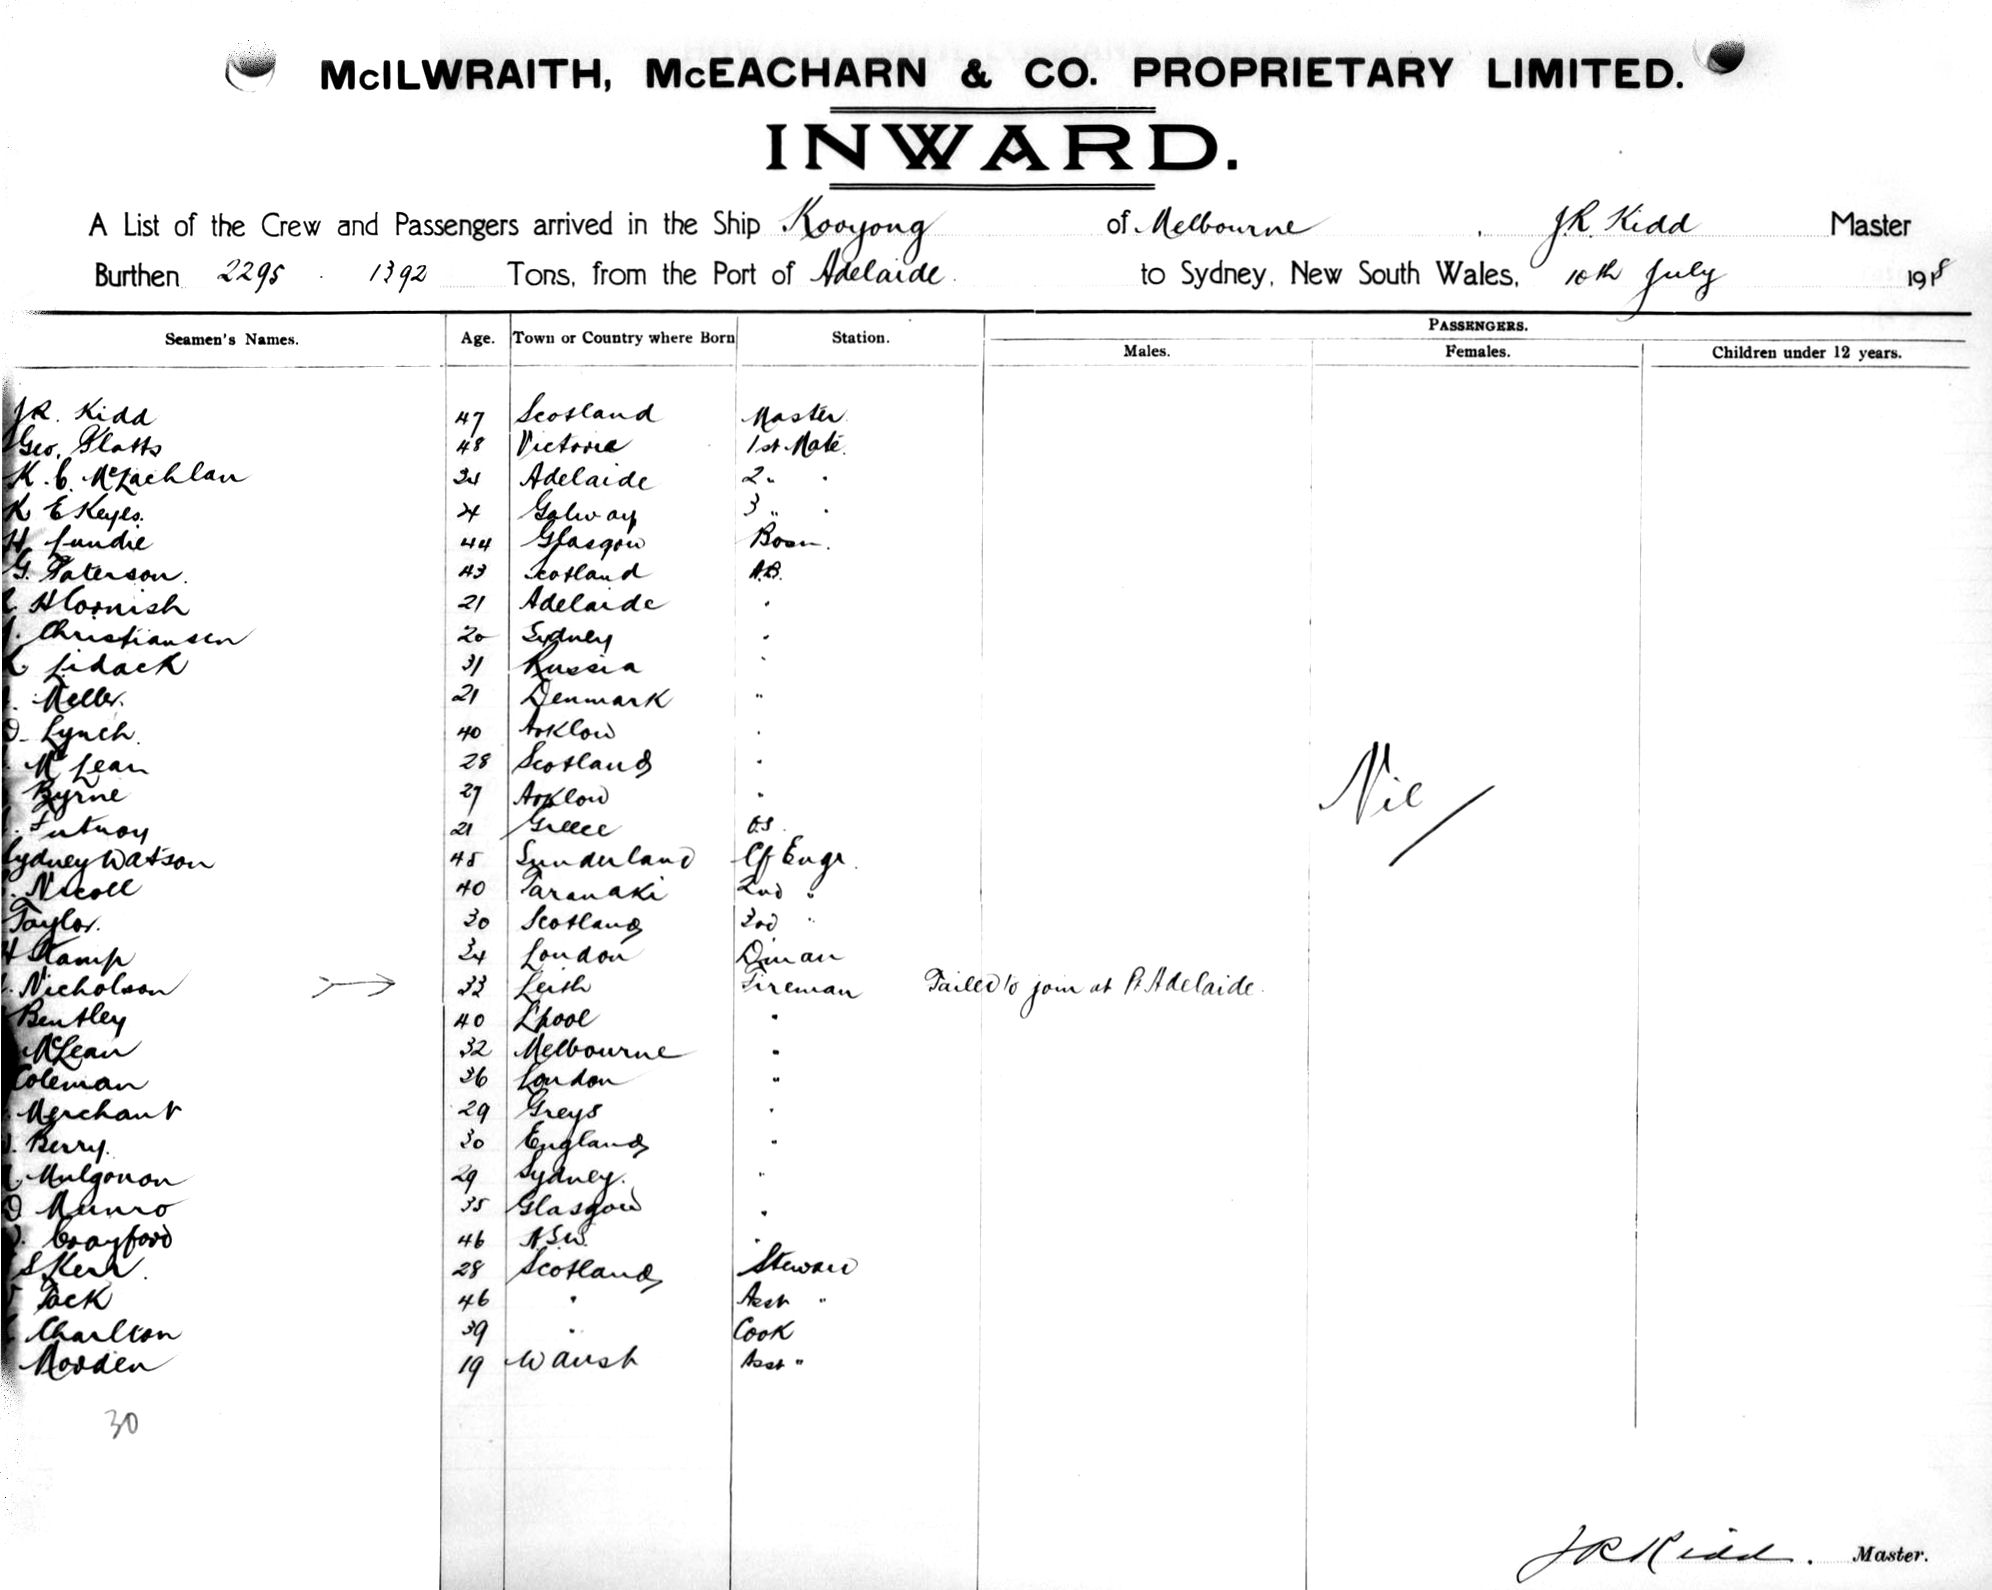 McILWRAITH, McEACHARN & CO. PROPRIETARY LIMITED.
INWARD.
A List of the Crew and Passengers arrived in the Ship Kooyong of Melbourne, J.R. Kidd Master
Burthen 2295 . 1392 Tons, from the Port of Adelaide to Sydney, New South Wales, 10th July 1918
Seamen's Names. Age. Town or Country where Born Station. PASSENGERS.
Males. Females. Children under 12 years.
J.R. Kidd 47 Scotland Master
Geo. Platts 48 Victoria 1st Mate.
K. C. McLachlan Adelaide 2 "
K E Keyes. Galway 3 "
H Lundie 44 Glasgow Bosn.
G. Paterson. 43 Scotland A.B.
H Cornish 21 Adelaide "
Christiansen 20 Sydney "
Lidack 31 Russia "
Meller. 21 Denmark "
D. Lynch. 40 Arklow "
McLean 28 Scotland "
Byrne 27 Arklow "
21 Greece O.S.
Nil
Sydney Watson 45 Sunderland Cf Engr.
Nicoll 40 Taranaki 2nd "
Taylor. 30 Scotland 3rd "
H Stamp 34 London Dman
Nicholson 33 Leith Fireman Failed to join at Pt Adelaide.
Bentley 40 L'pool "
McLean 32 Melbourne "
Coleman 36 London "
Merchant 29 Greys "
Berry. 30 England "
29 Sydney. "
D Munro 35 Glasgow "
Crayford 46 N.S.W. "
S Kerr. 28 Scotland Steward
Tack 46 " Asst "
Charlton 39 " Cook
Madden 19 Asst "
30
J R Kidd. Master.